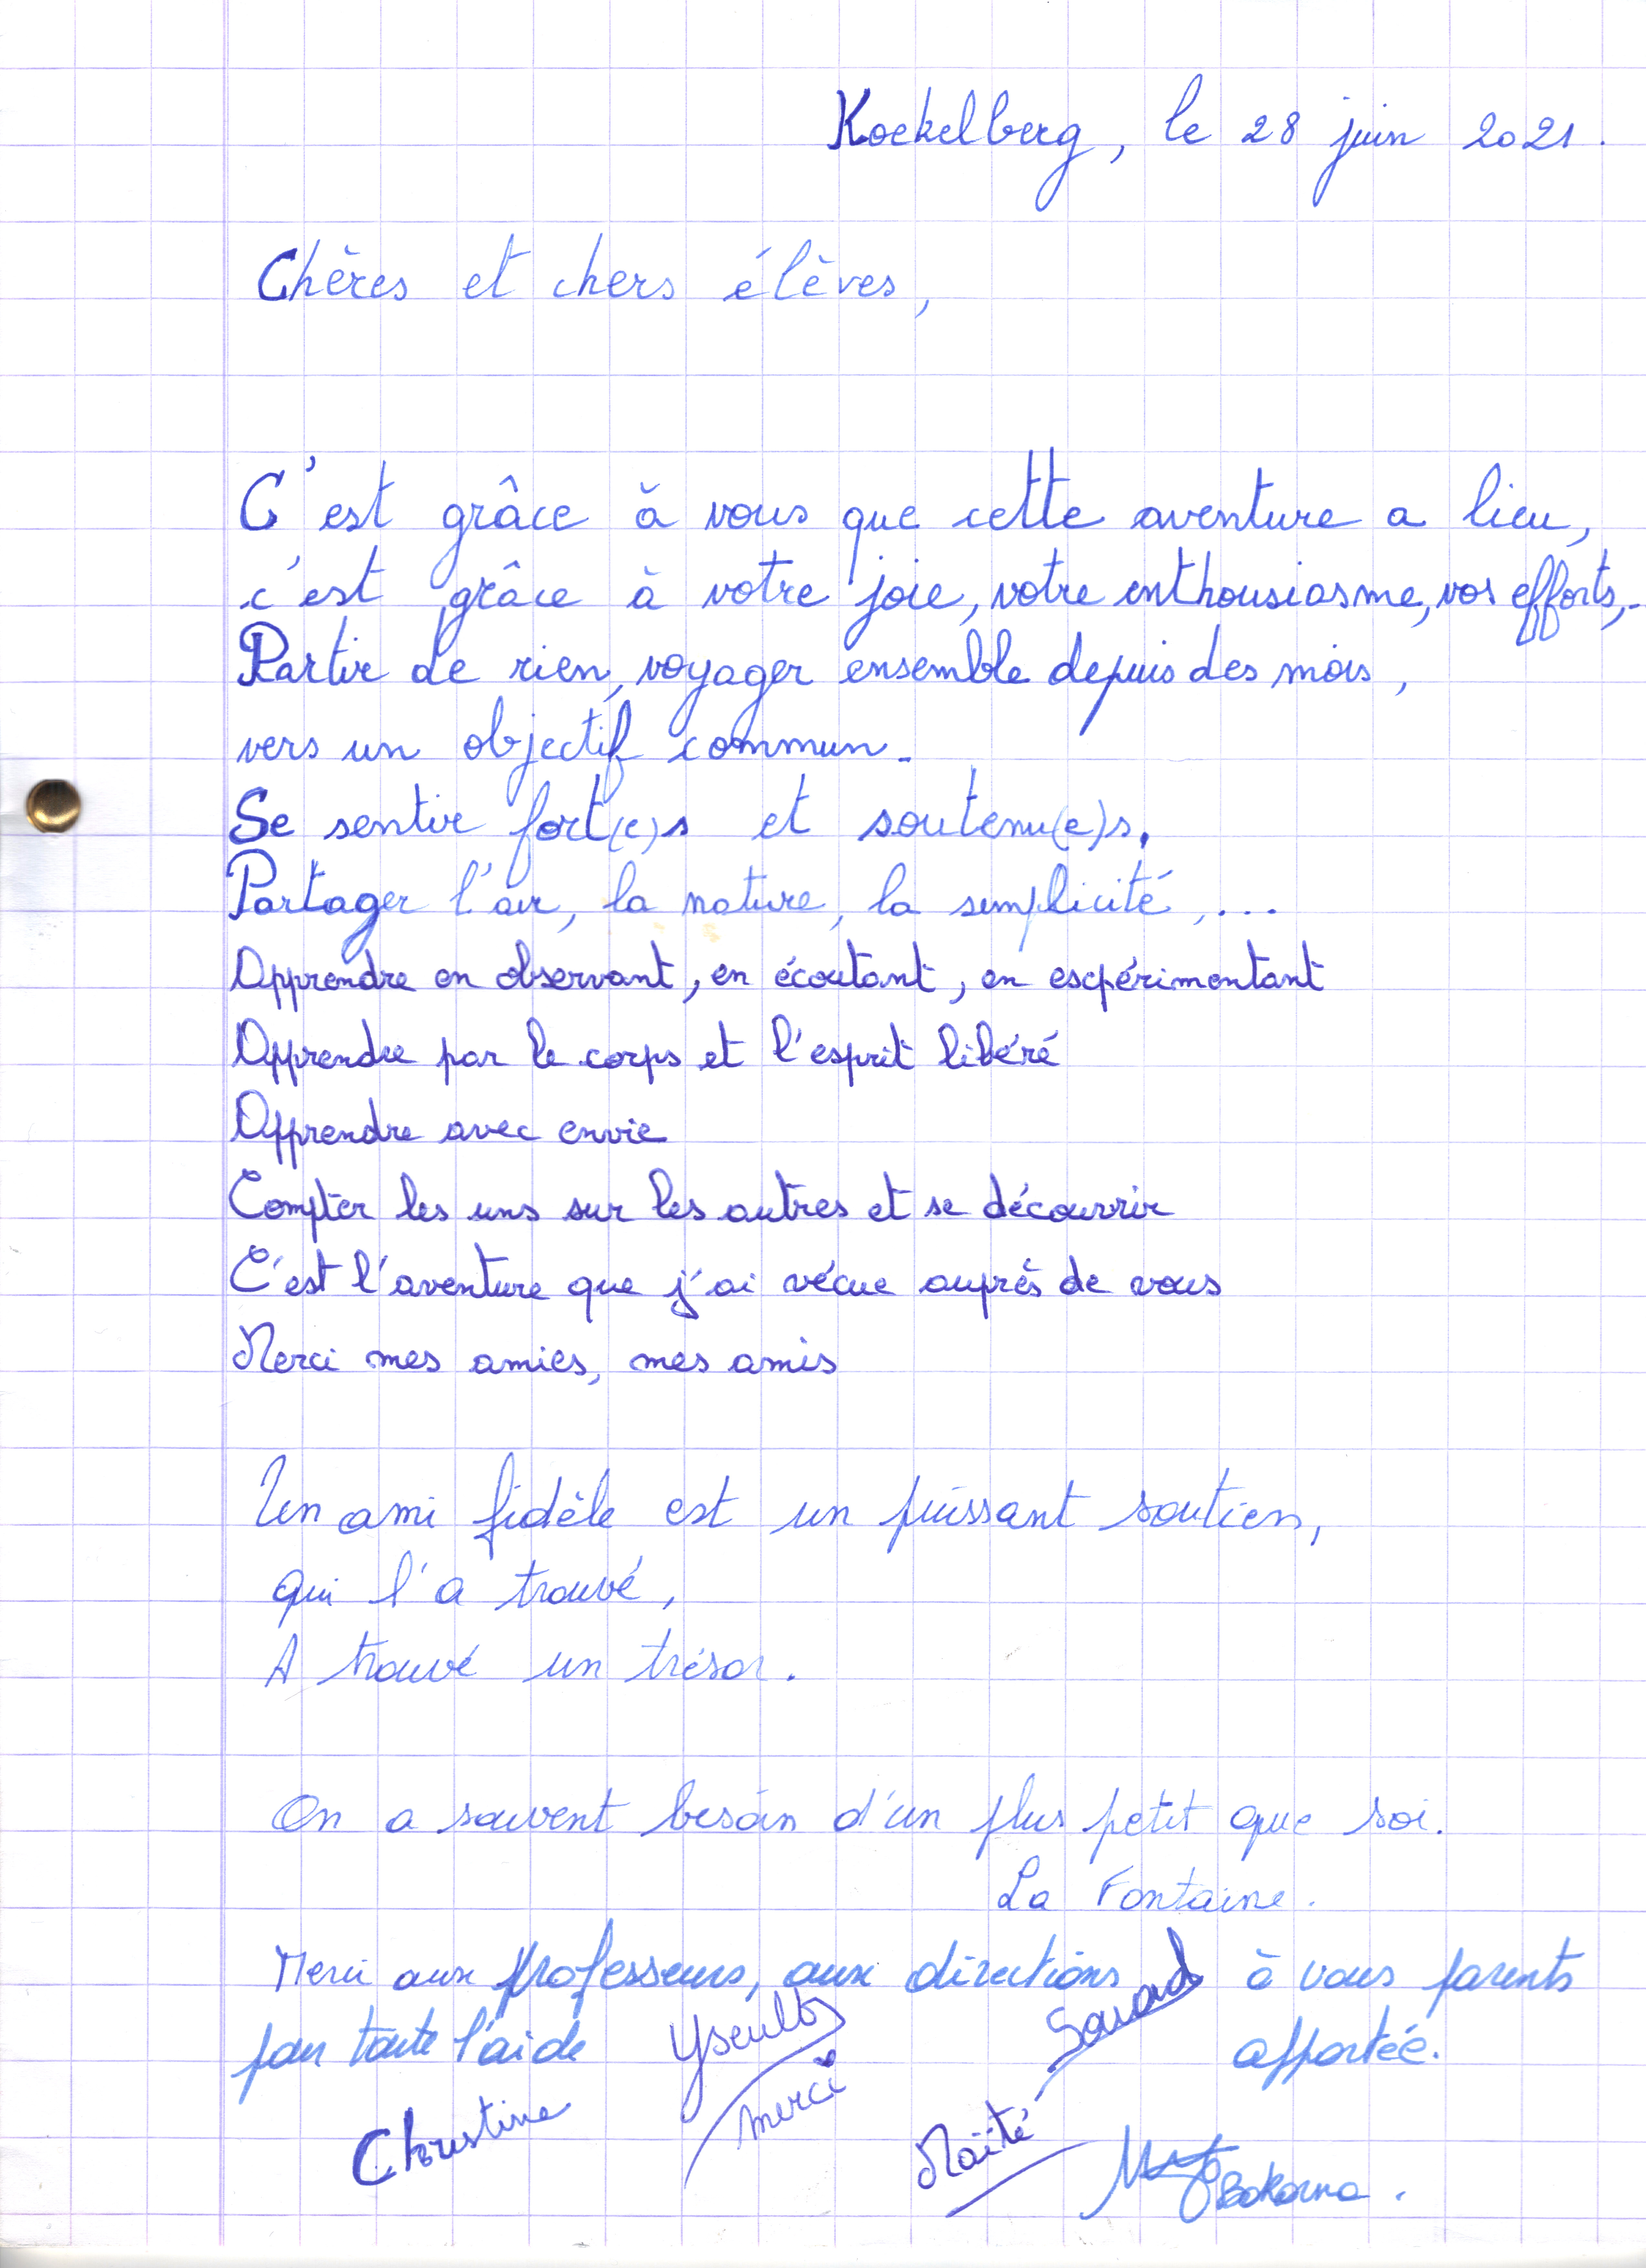 Koekelberg, le 28 juin 2021.
Chères et chers élèves,
C'est grâce à vous que cette aventure a lieu,
c'est grâce à votre joie, votre enthousiasme, vos efforts,..
Partir de rien, voyager ensemble depuis des mois,
vers un objectif commun.
Se sentir fort(e)s et soutenu(e)s.
Partager l'air, la nature, la simplicité,...
Apprendre en observant, en écoutant, en expérimentant
Apprendre par le corps et l'esprit libéré
Apprendre avec envie
Compter les uns sur les autres et se découvrir
C'est l'aventure que j'ai vécue auprès de vous
Merci mes amies, mes amis
Un ami fidèle est un puissant soutien,
qui l'a trouvé,
A trouvé un trésor.
On a souvent besoin d'un plus petit que soi.
La Fontaine.
Merci aux professeurs, aux directions à vous parents
pour toute l'aide apportée.
Yseult
merci
Christine
Maïté